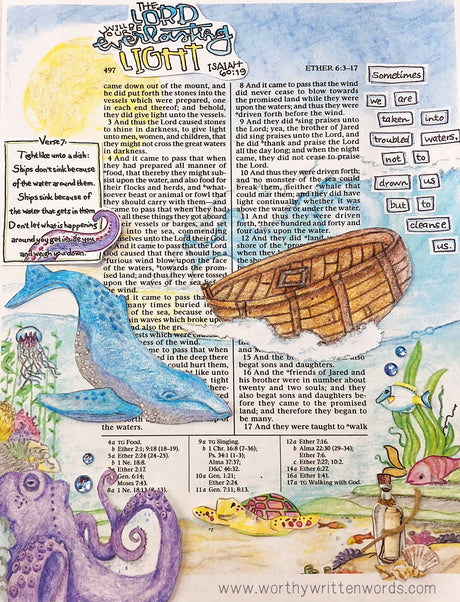 THE
LORD
WILL BE
YOUR
everlasting
LIGHT
ISAIAH
60:19
497
ETHER 6:3–17
came down out of the mount, and
he did put forth the stones into the
vessels which were prepared, one
in each end thereof; and behold,
they did give light unto the vessels.
3 And thus the Lord caused stones
to shine in darkness, to give light
unto men, women, and children, that
they might not cross the great waters
in darkness.
4 And it came to pass that when
they had prepared all manner of
food, that thereby they might sub
sist upon the water, and also food for
their flocks and herds, and what-
soever beast or animal or fowl that
they should carry with them—and
came to pass that when they had
all these things they got aboard
vessels or barges, and set
into the sea, commending
selves unto the Lord their God.
And it came to pass that the Lord
God caused that there should be a
furious wind blow upon the face
of the waters, towards the prom-
ised land; and thus they were tossed
upon the waves of the sea
the wind.
it came to pass that
many times buried
of the sea, because of
waves which broke up
and also the gr
which were cau
ness of the wind.
came to pass that when
in the deep there
could hurt them,
like unto
tight
the waters.
8 And it came to pass that the wind
did never cease to blow towards
the promised land while they were
upon the waters; and thus they were
driven forth before the wind.
9 And they did sing praises unto
the Lord; yea, the brother of Jared
did sing praises unto the Lord, and
he did thank and praise the Lord
all the day long; and when the night
came, they did not cease to praise
the Lord.
10 And thus they were driven forth;
and no monster of the sea could
break them, neither whale that
could mar them; and they did have
light continually, whether it was
above the water or under the water.
11 And thus they were driven
forth, three hundred and forty and
four days upon the water.
12 And they did land
shore of the
when
15 And the
begat sons and daughters
16 And the friends of Jared and
his brother were in number about
twenty and two souls; and they
also begat sons and daughters be-
fore they came to the promised
land; and therefore they began to
be many.
17 And they were taught to walk
Verse 7:
Tight like unto a dish:
Ships don't sink because
of the water around them.
Ships sink because of
the water that gets in them
Don't let what is happening
around you get inside you
and weigh you down.
Sometimes
we are
taken into
troubled waters,
not to
drown us
but to
cleanse
us.
4a TG Food.
b Ether 2:1; 9:18 (18–19).
5a Ether 2:24 (24–25).
b 1 Ne. 18:8.
Ether 2:17.
6a Gen. 6:14;
Moses 7:43.
8a 1 Ne. 18:13
9a TG Singing.
b 1 Chr. 16:8 (7–36);
Ps. 34:1 (1–3);
Alma 37:37;
D&C 46:32.
10a Gen. 1:21;
Ether 2:24.
11a Gen. 7:11; 8:13.
12a Ether 7:16.
b Alma 22:30 (29–34);
Ether 7:6.
c Ether 7:27; 10:2.
14a Ether 6:27.
16a Ether 1:41.
17a TG Walking with God.
www.worthywrittenwords.com